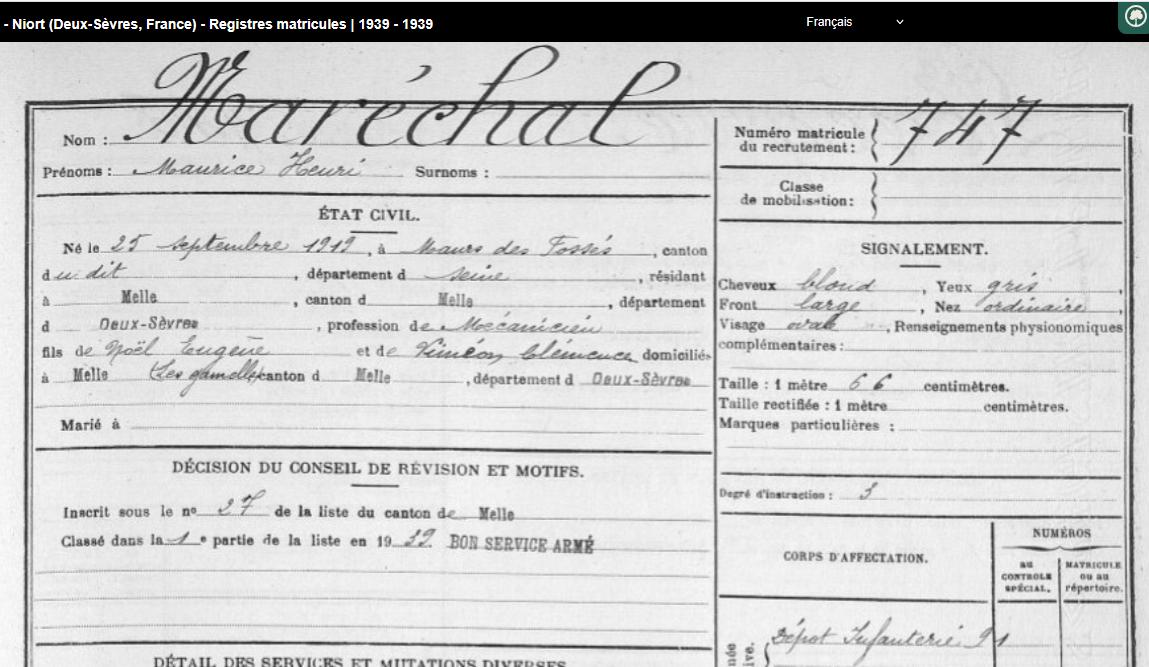 - Niort (Deux-Sèvres, France) - Registres matricules | 1939 - 1939
Français
Maréchal
Nom :
Prénoms : Maurice Henri Surnoms :
ÉTAT CIVIL.
Né le 25 septembre 1919, à Maurs des Fossés, canton
du dit, département d Seine, résidant
à Melle, canton d Melle, département
d Deux-Sèvres, profession de Mécanicien
fils de Noël Eugène et de Clémence domiciliés
à Melle (Les gamelles) canton d Melle, département d Deux-Sèvres
Marié à
DÉCISION DU CONSEIL DE RÉVISION ET MOTIFS.
Inscrit sous le nº 27 de la liste du canton de Melle
Classé dans la 1e partie de la liste en 1939. BON SERVICE ARMÉ
DÉTAIL DES SERVICES ET MUTATIONS DIVERSES
Numéro matricule
du recrutement : 747
Classe
de mobilisation :
SIGNALEMENT.
Cheveux blond, Yeux gris,
Front large, Nez ordinaire
Visage ovale, Renseignements physionomiques
complémentaires :
Taille : 1 mètre 66 centimètres.
Taille rectifiée : 1 mètre centimètres.
Marques particulières :
Degré d'instruction : 3
NUMÉROS
CORPS D'AFFECTATION.
au
CONTROLE
SPÉCIAL.
MATRICULE
ou au
répertoire.
Dépot Infanterie 91